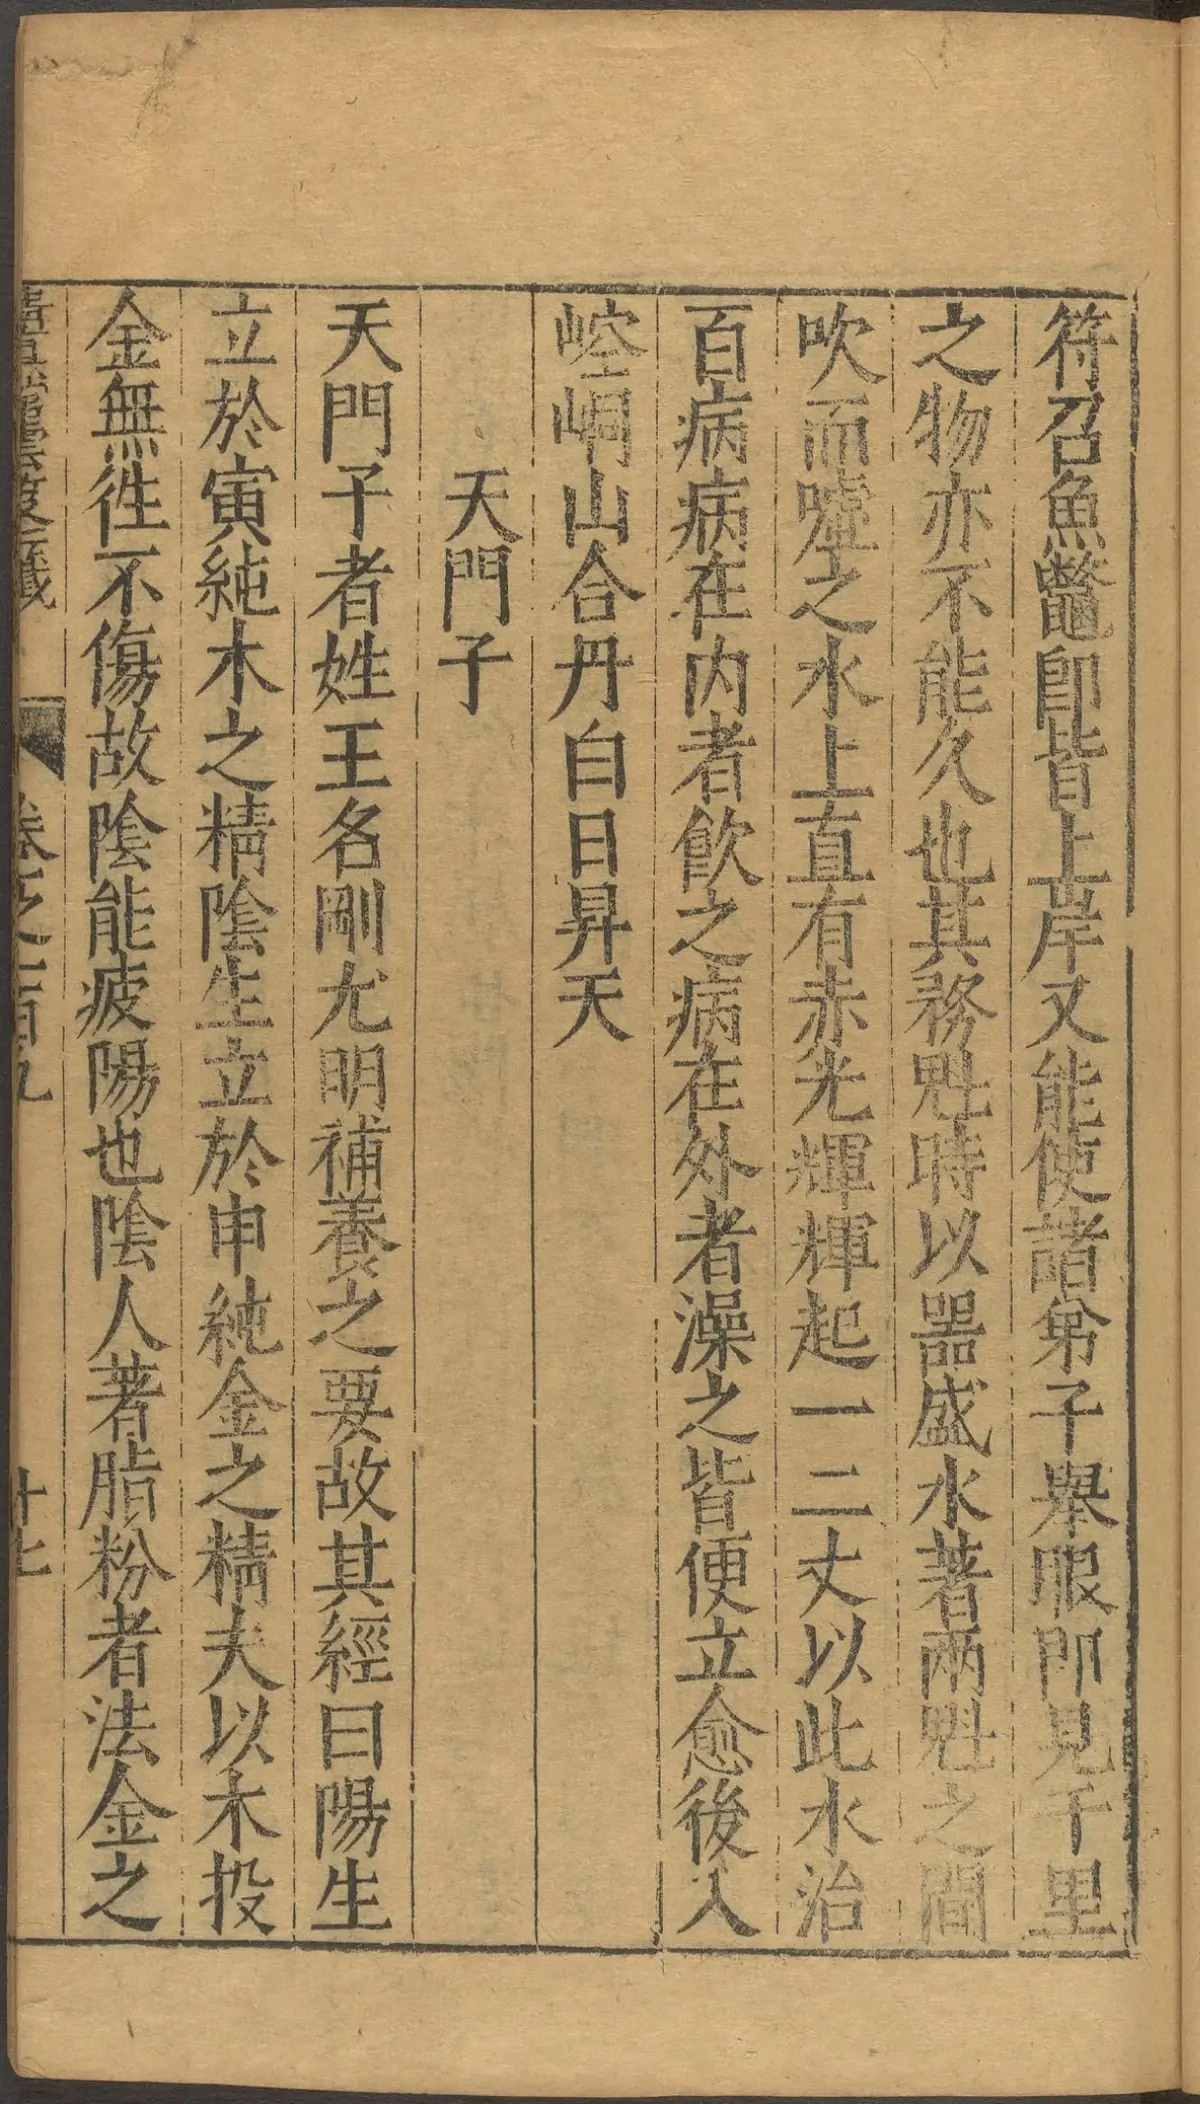 符召魚鼈卽皆上岸又能使諸弟子舉眼卽見千里
之物亦不能久也其務魁時以器盛水著兩魁之間
吹而噓之水上直有赤光輝輝起一二丈以此水治
百病病在内者飮之病在外者澡之皆便立愈後入
崆峒山合丹白日昇天
天門子
天門子者姓王名剛尤明補養之要故其經曰陽生
立於寅純木之精陰生立於申純金之精夫以木投
金無徃不傷故陰能疲陽也陰人著脂粉者法金之
清真館雲笈七籤 卷之一百九 十七